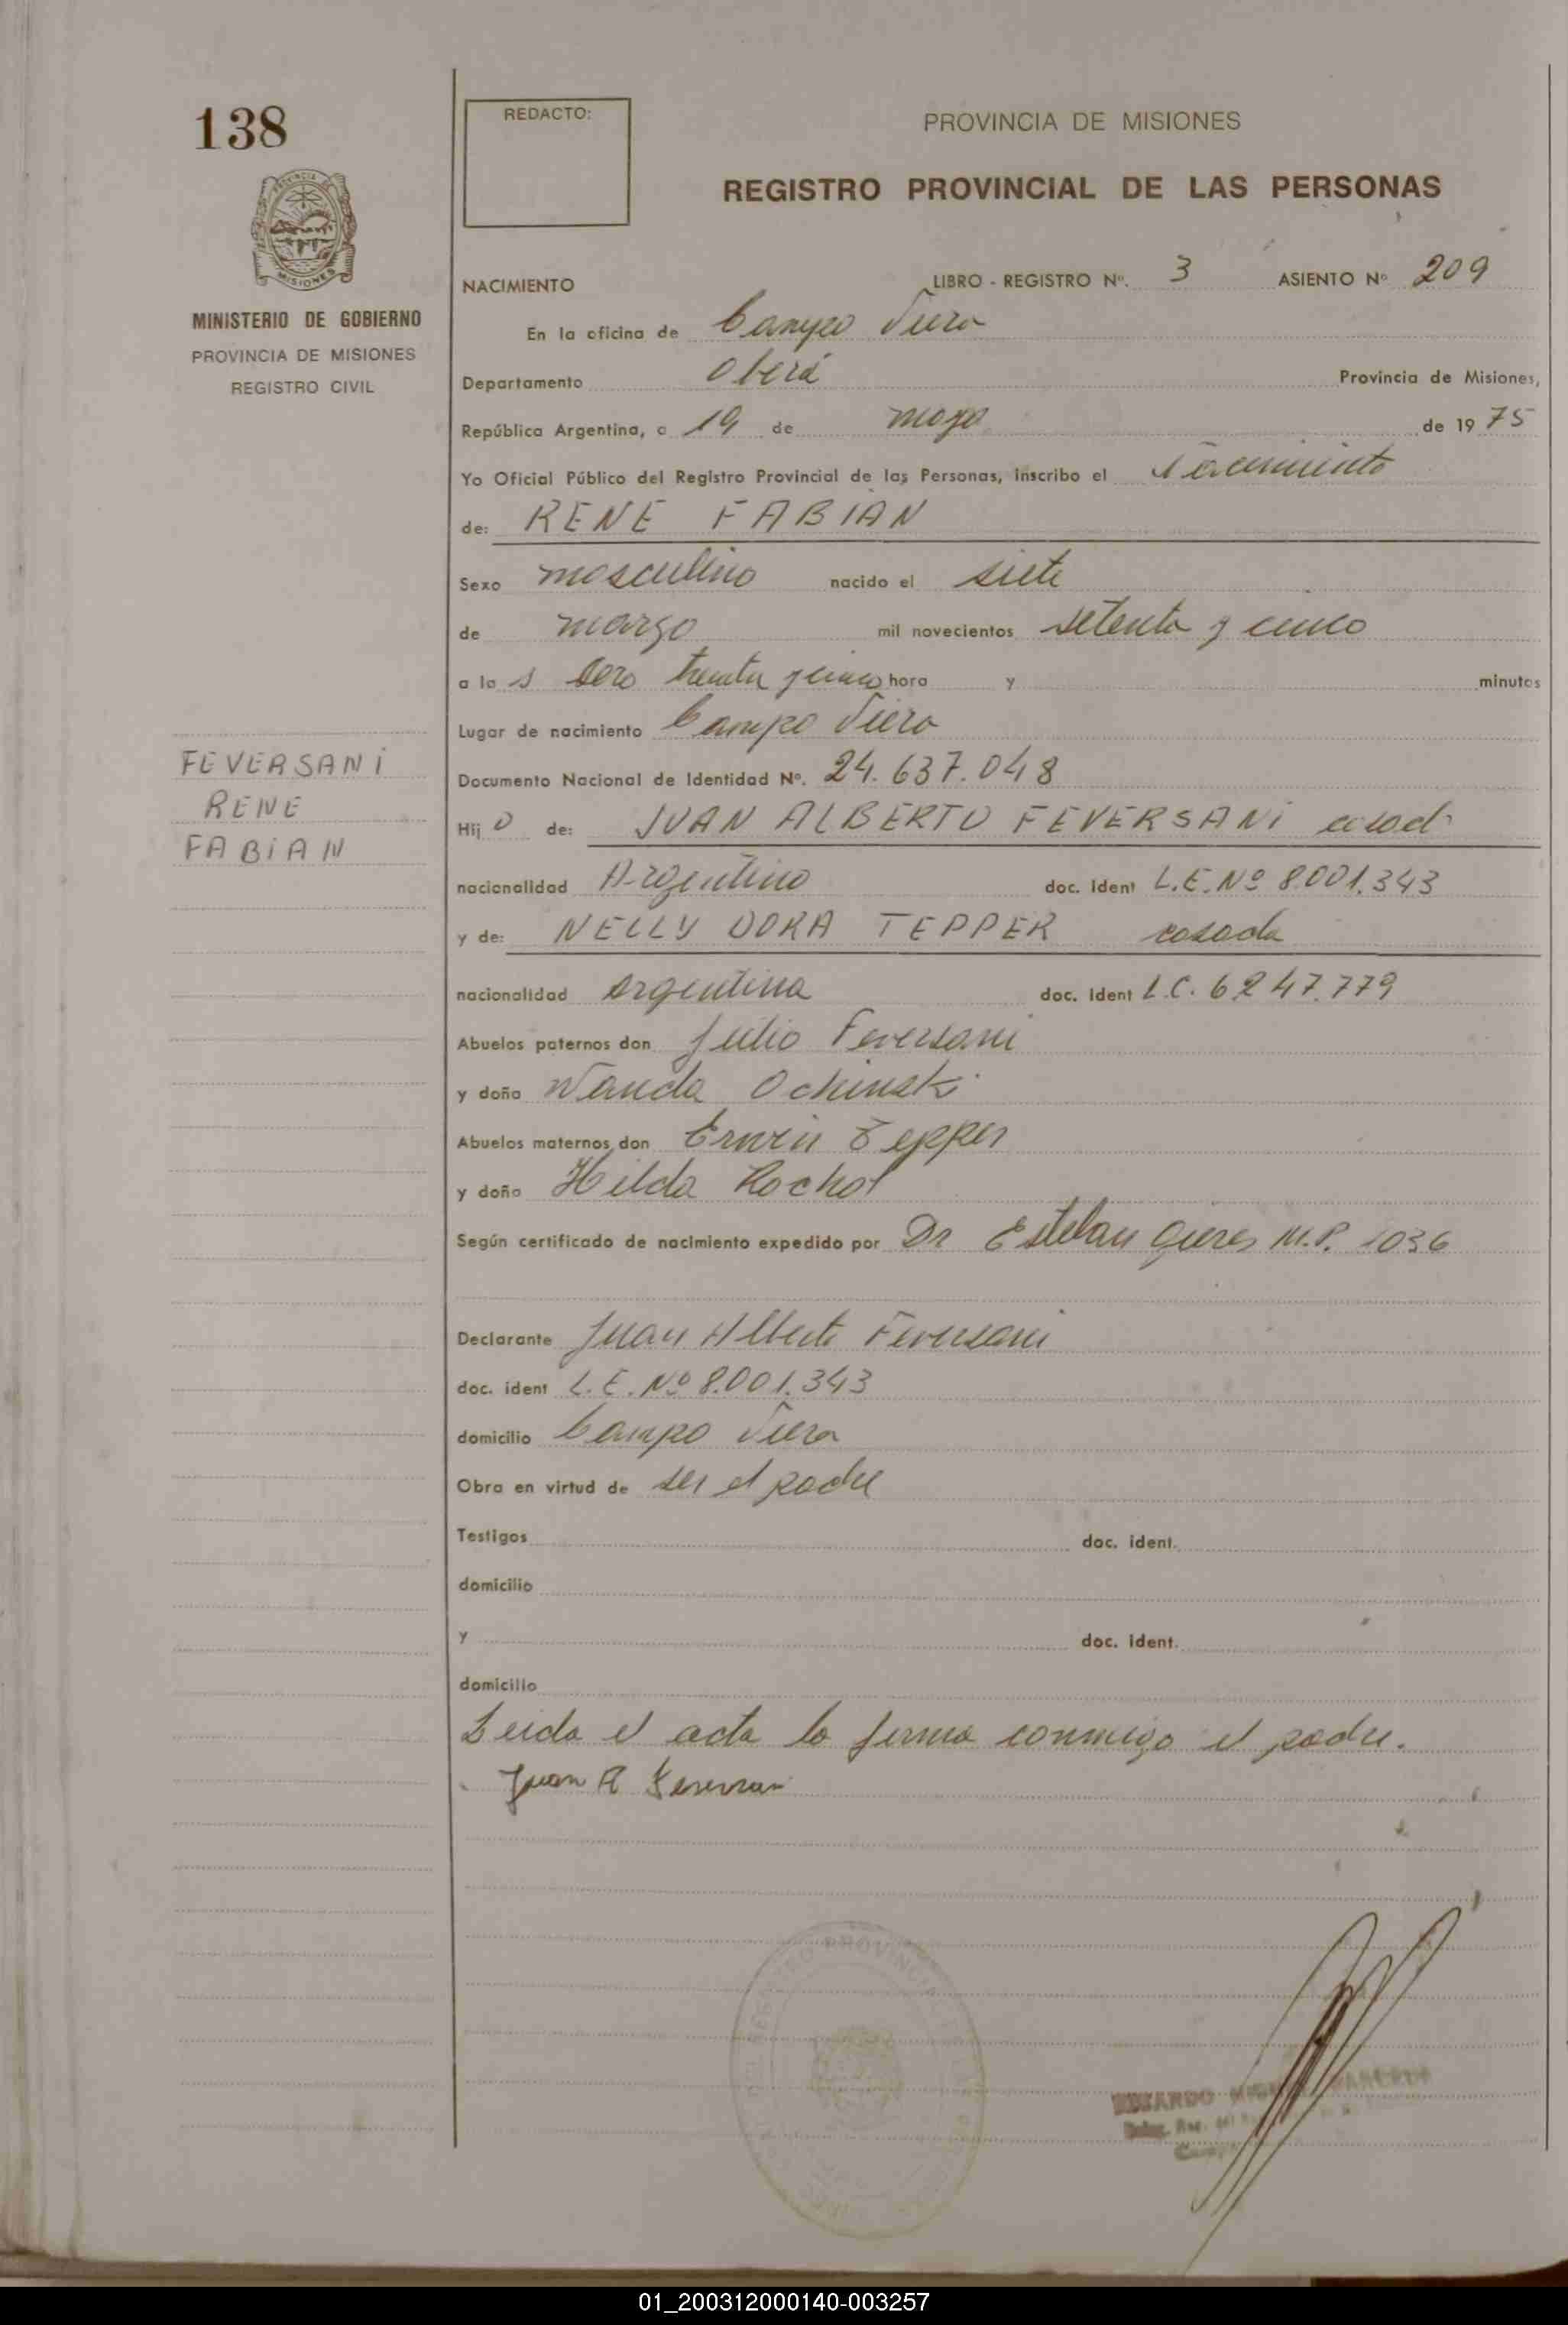 138
REDACTO:
PROVINCIA DE MISIONES
REGISTRO PROVINCIAL DE LAS PERSONAS
PROVINCIA DE
MISIONES
MINISTERIO DE GOBIERNO
PROVINCIA DE MISIONES
REGISTRO CIVIL
NACIMIENTO LIBRO - REGISTRO Nº. 3 ASIENTO Nº 209
En la oficina de Campo Viera
Departamento Oberá Provincia de Misiones,
República Argentina, a 19 de mayo de 19 75
Yo Oficial Público del Registro Provincial de las Personas, inscribo el Nacimiento
de: RENE FABIAN
Sexo masculino nacido el siete
de marzo mil novecientos setenta y cinco
a la s cero treinta y cinco hora y minutos
Lugar de nacimiento Campo Viera
Documento Nacional de Identidad Nº. 24.637.048
FEVERSANI
RENE
FABIAN
Hij o de: JUAN ALBERTO FEVERSANI casado
nacionalidad Argentino doc. Ident L.E. Nº 8.001.343
y de: NELLY DORA TEPPER casada
nacionalidad argentina doc. Ident L.C. 6247.779
Abuelos paternos don Julio Feversani
y doña Wanda Ochinski
Abuelos maternos don Erwin Tepper
y doña Hilda Rochol
Según certificado de nacimiento expedido por Dr Esteban M.P. 1036
Declarante Juan Alberto Feversani
doc. ident L.E. Nº 8.001.343
domicilio Campo Viera
Obra en virtud de ser el padre
Testigos doc. ident.
domicilio
y doc. ident.
domicilio
Leida el acta la firma conmigo el padre.
Juan A Feversani
01_200312000140-003257